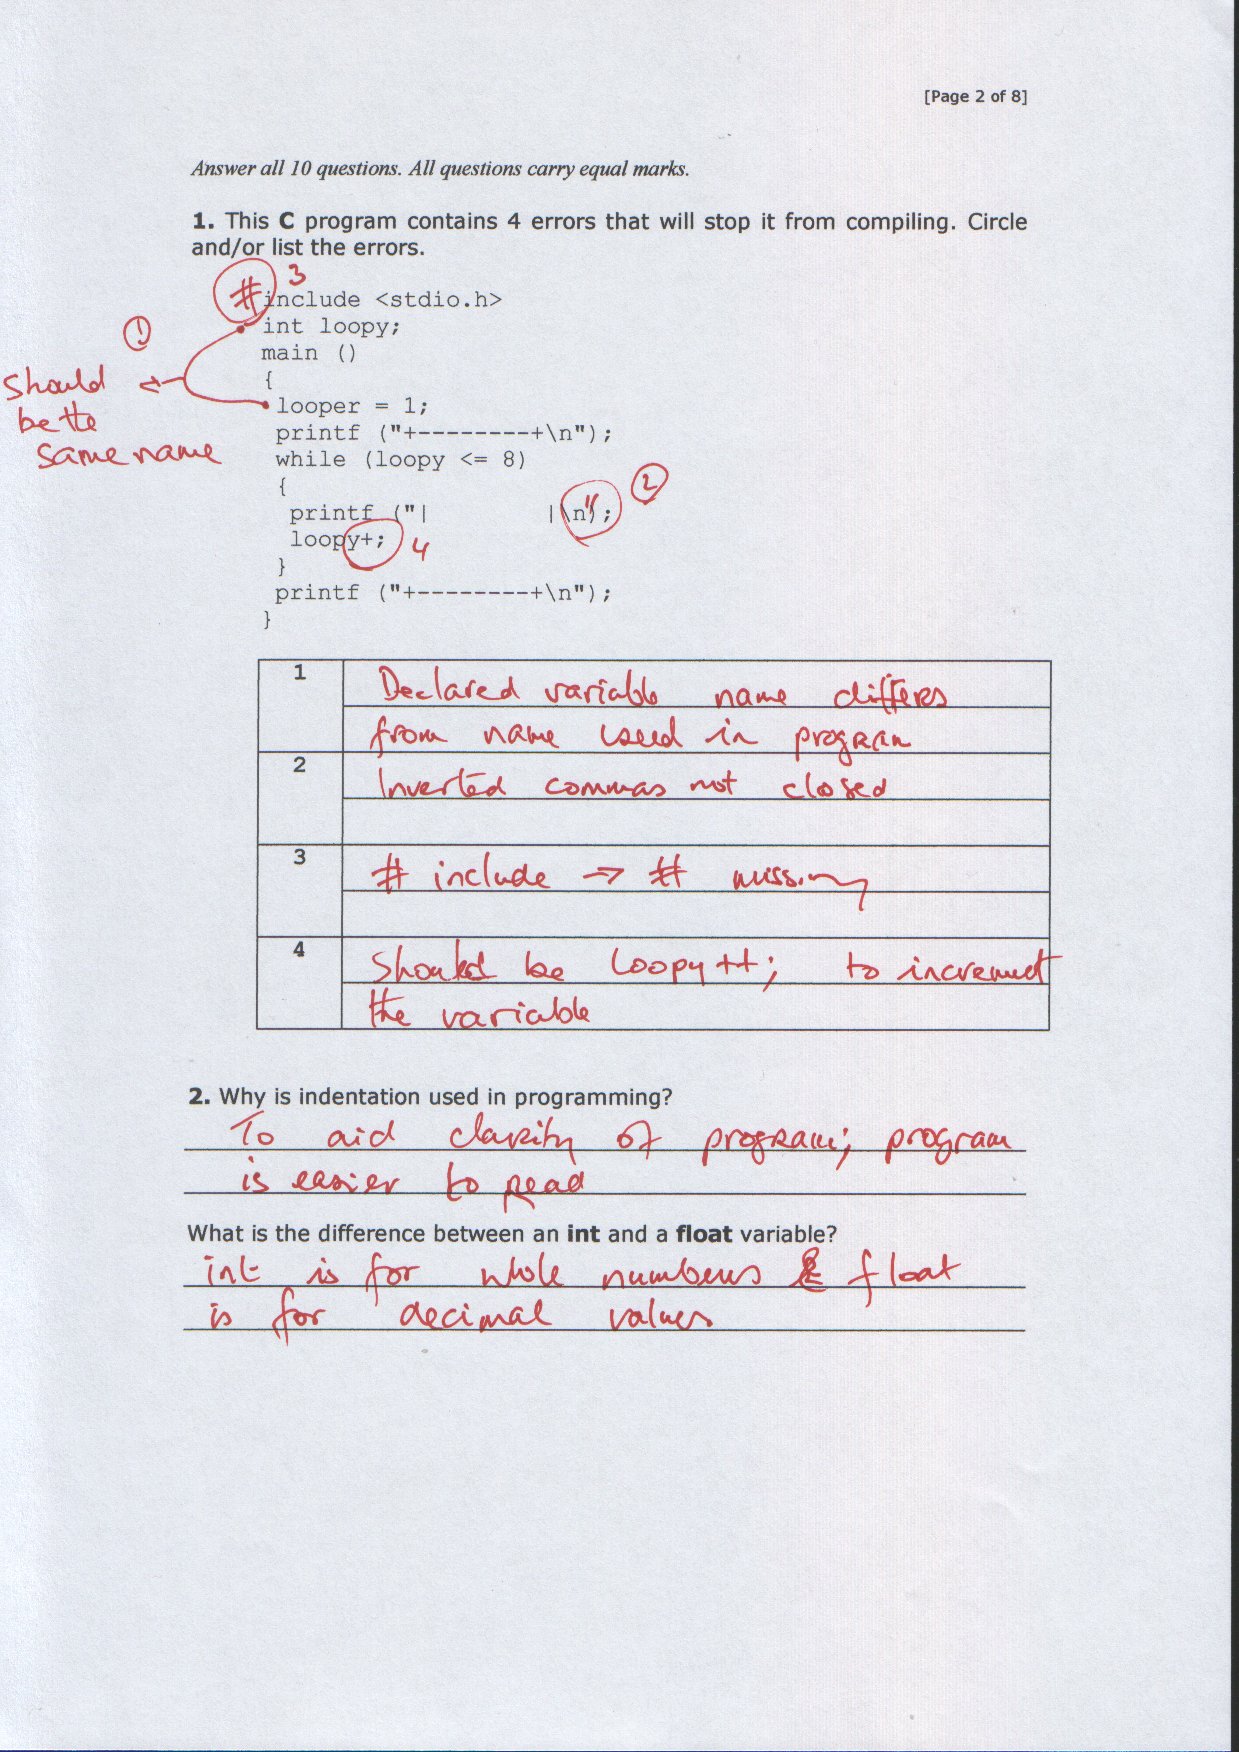 [Page 2 of 8]
Answer all 10 questions. All questions carry equal marks.
1. This C program contains 4 errors that will stop it from compiling. Circle
and/or list the errors.
3
#include <stdio.h>
① int loopy;
main ()
should {
be the looper = 1;
same name printf ("+--------+\n");
while (loopy <= 8)
{ ②
printf ("|         |\n");
loopy+; 4
}
printf ("+--------+\n");
}
1 Declared variable name differs
from name used in program
2 Inverted commas not closed
3 # include → # missing
4 Should be loopy++; to increment
the variable
2. Why is indentation used in programming?
To aid clarity of program; program
is easier to read
What is the difference between an int and a float variable?
int is for whole numbers & float
is for decimal values